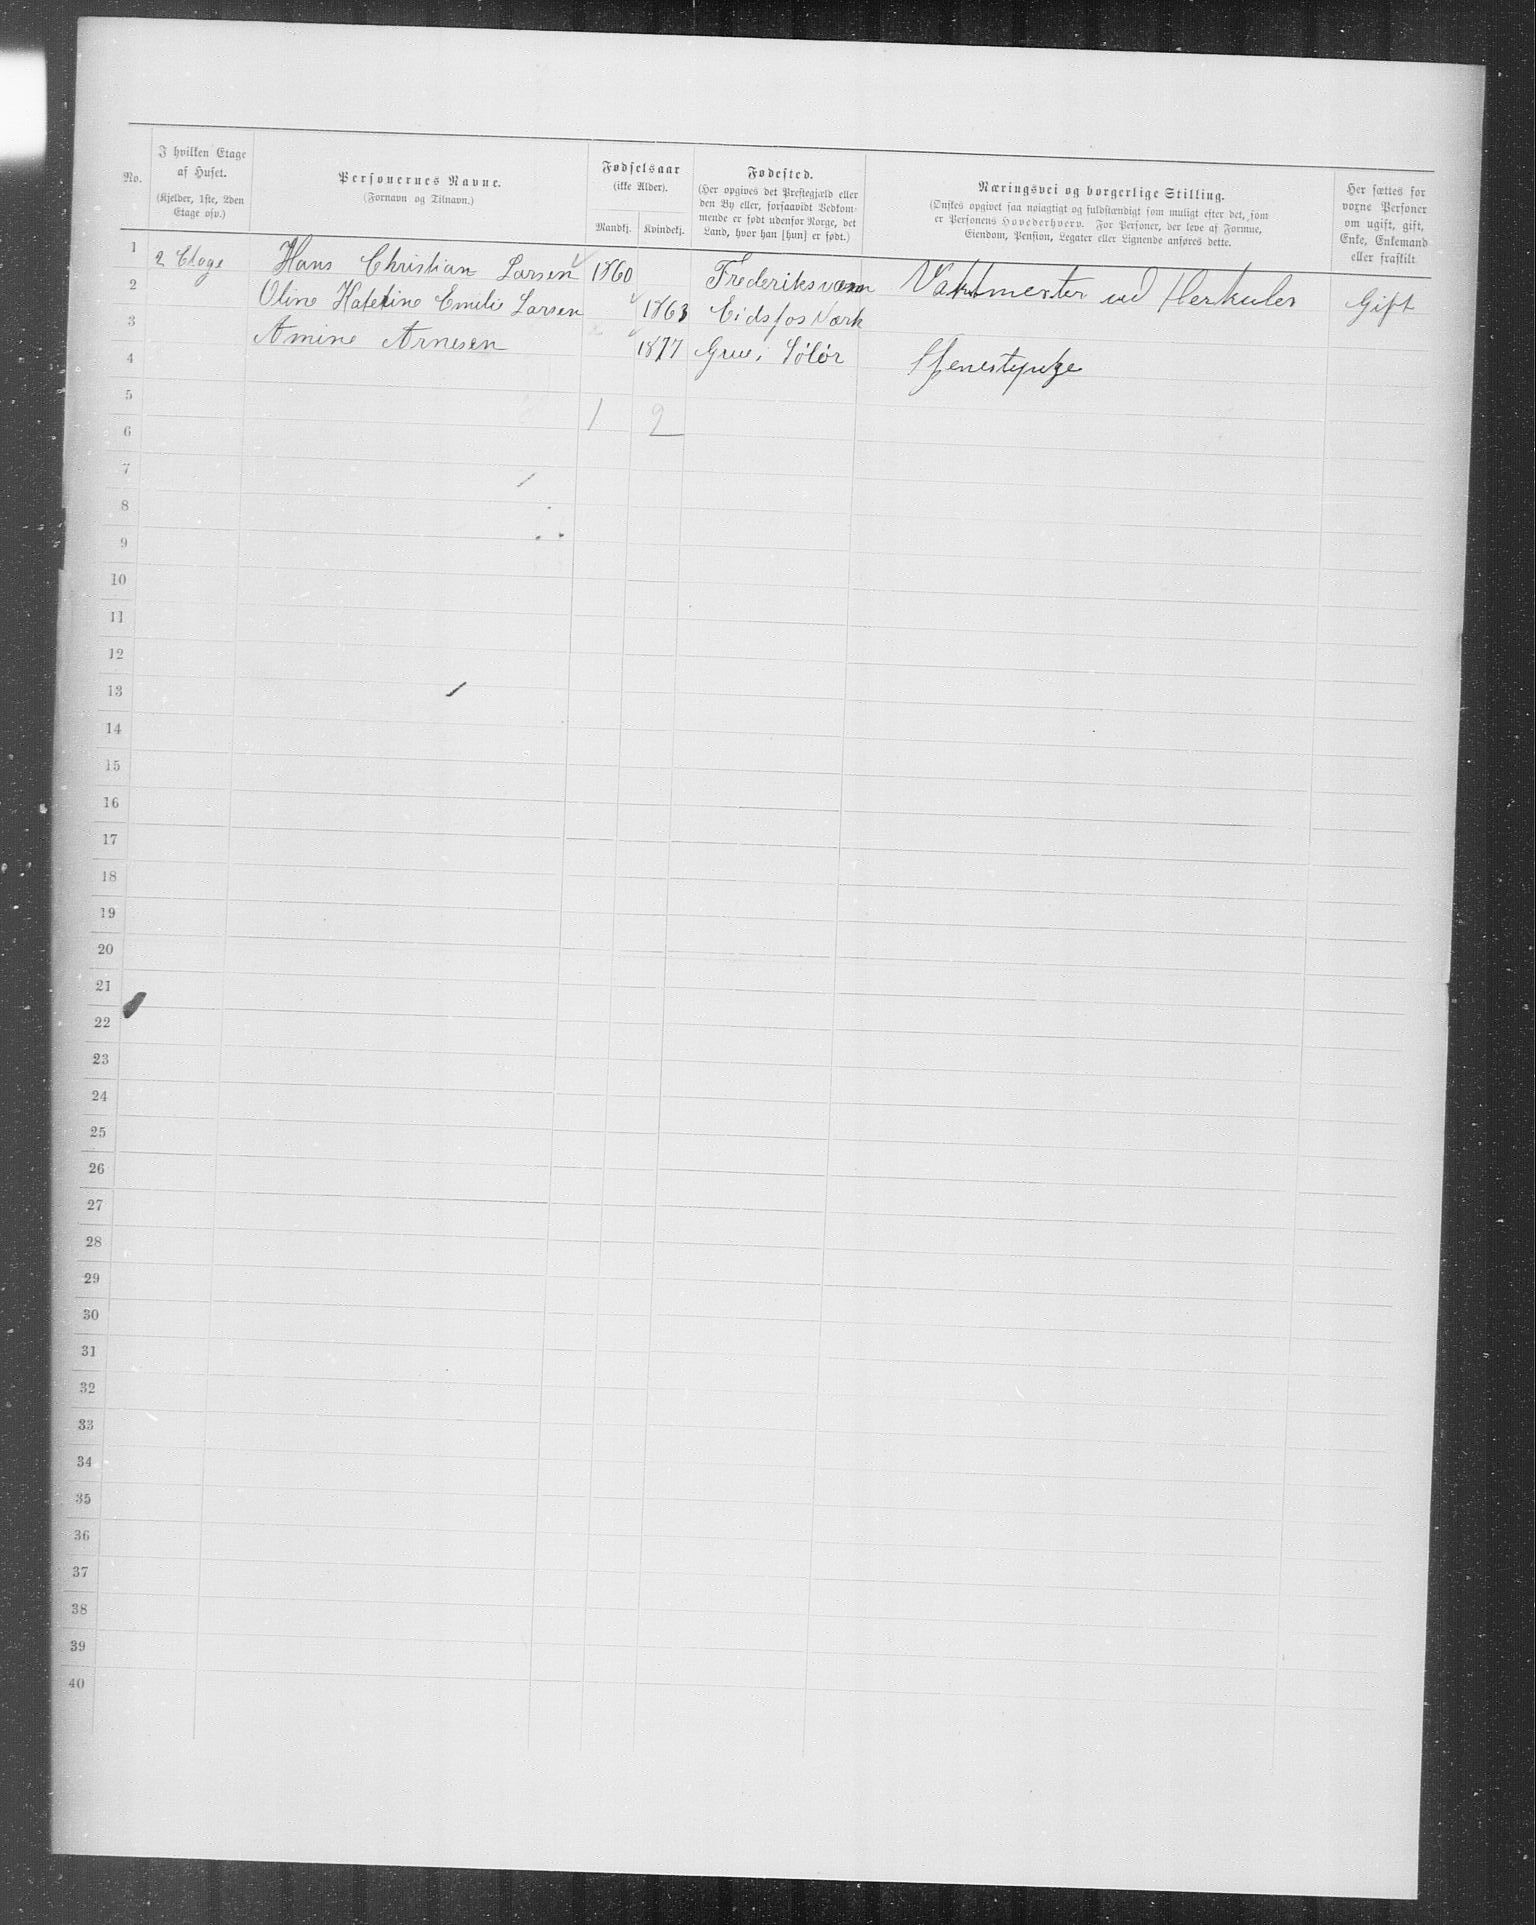 No.
I hvilken Etage
af Huset.
(Kjelder, 1ste, 2den
Etage osv.)
Personernes Navne.
(Fornavn og Tilnavn.)
Fødselsaar
(ikke Alder).
Mandkj. Kvindekj.
Fødested.
(Her opgives det Prestegjæld eller
den By eller, forsaavidt Vedkom-
mende er født udenfor Norge, det
Land, hvor han [hun] er født.)
Næringsvei og borgerlige Stilling.
(Ønskes opgivet saa nøiagtigt og fuldstændigt som muligt efter det, som
er Personens Hovederhverv. For Personer, der leve af Formue,
Eiendom, Pension, Legater eller Lignende anføres dette.
Her sættes for
vorne Personer
om ugift, gift,
Enke, Enkemand
eller fraskilt
1 2 Etage Hans Christian Larsen 1860 Frederiksværn Vaktmester ved Herkules Gift
2 Oline Katetine Emilie Larsen 1863 Eidsfos Værk
3 Amine Arnesen 1877 Grue i Solør Tjenestepige
4
5 1 2
6
7
8
9
10
11
12
13
14
15
16
17
18
19
20
21
22
23
24
25
26
27
28
29
30
31
32
33
34
35
36
37
38
39
40